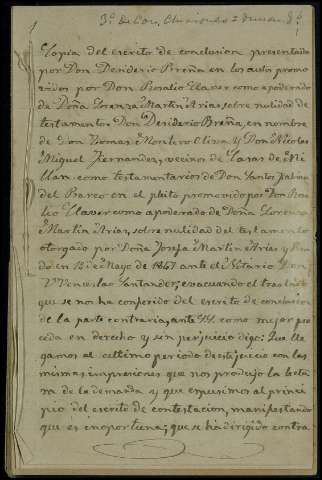 1
Copia del escrito de conclusion presentado
por Don Desiderio Breña en los autos promo
vidos por Don Rosalio Claver como apoderado
de Doña Lorenza Martin Arias, sobre nulidad de
testamento. Don Desiderio Breña, en nombre
de Don Tomas Montero Oliva y Don Nicolas
Miguel Hernandez, vecinos de Casas de Mi
llan como testamentarios de Don Santos
del Barco en el pleito promovido por Don Rosa
lio Claver como apoderado de Doña Lorenza
Martin Arias, sobre nulidad del testamento
otorgado por Doña Josefa Martin Arias y
en 13 de Mayo de 1867 ante el Notario Don
Veneslao Santander, evacuando el traslado
que se nos ha conferido del escrito de conclusion
de la parte contraria, ante V.S. como mejor pro
ceda en derecho y sin perjuicio digo: Que lle
gamos al ultimo periodo de este juicio con las
mismas impresiones que nos produjo la lectu
ra de la demanda y que expusimos al princi
pio del escrito de contestacion, manifestando
que es inoportuna; que se ha dirigido contra